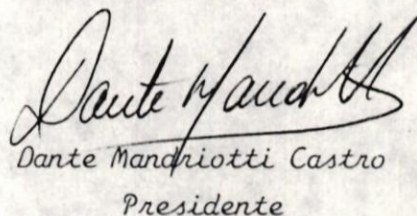 Dante Mandriotti
Dante Mandriotti Castro
Presidente